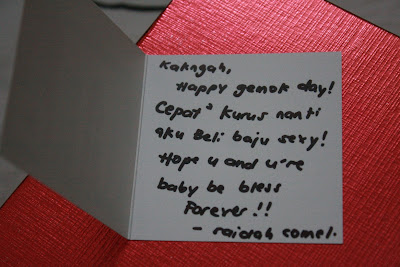 Kakngah,
Happy gemok day!
Cepat² kurus nanti
aku Beli baju sexy!
Hope u and u're
baby be bless
Forever!!
- raidah comel.